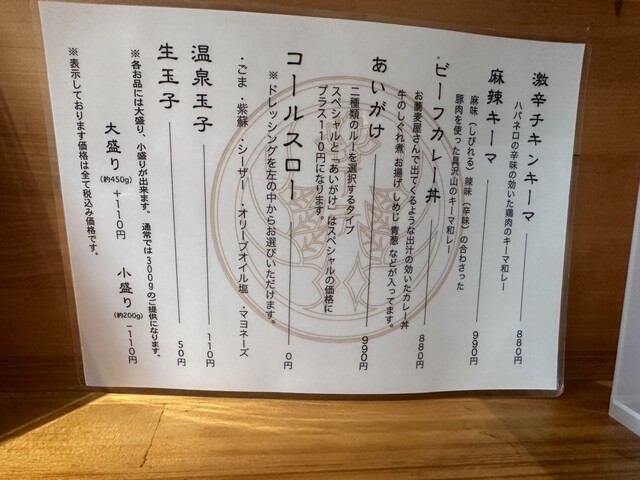 激辛チキンキーマ 880円
ハバネロの辛味の効いた鶏肉のキーマ和レー
麻辣キーマ 990円
麻味（しびれる）辣味（辛味）の合わさった
豚肉を使った具沢山のキーマ和レー
ビーフカレー丼 880円
お蕎麦屋さんで出てくるような出汁の効いたカレー丼
牛のしぐれ煮 お揚げ しめじ 青葱 などが入ってます。
あいがけ 990円
二種類のルーを選択するタイプ
スペシャルと「あいがけ」はスペシャルの価格に
プラス110円になります。
コールスロー 0円
※ドレッシングを左の中からお選びいただけます。
・ごま ・紫蘇 ・シーザー ・オリーブオイル塩 ・マヨネーズ
温泉玉子 110円
生玉子 50円
※各お品には大盛り、小盛りが出来ます。通常では300gのご提供になります。
大盛り（約450g）＋110円 小盛り（約200g）−110円
※表示しております価格は全て税込み価格です。